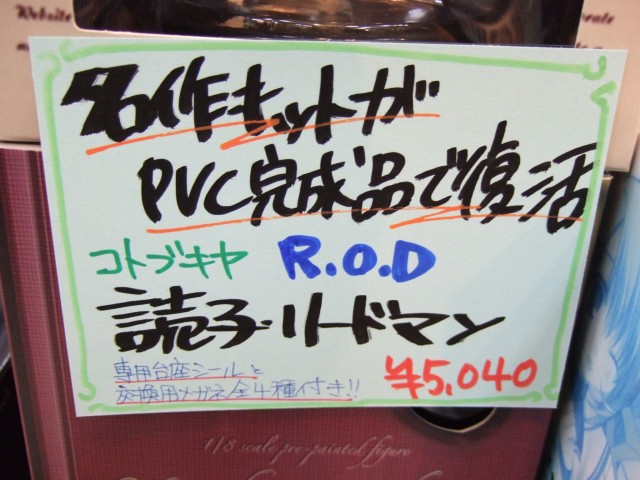 Website
名作キットが
PVC完成品で復活
コトブキヤ R.O.D
読子・リードマン
専用台座シールと
交換用メガネ全4種付き!!
¥5,040
1/8 scale pre-painted figure